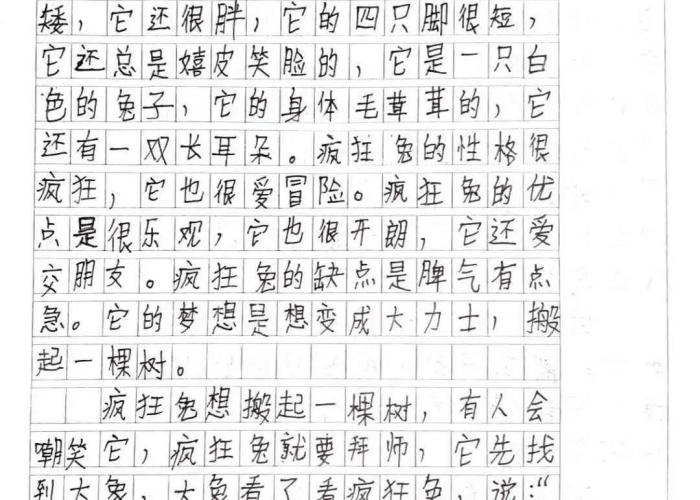 矮，它还很胖，它的四只脚很短，
它还总是嬉皮笑脸的，它是一只白
色的兔子，它的身体毛茸茸的，它
还有一双长耳朵。疯狂兔的性格很
疯狂，它也很爱冒险。疯狂兔的优
点是很乐观，它也很开朗，它还爱
交朋友。疯狂兔的缺点是脾气有点
急。它的梦想是想变成大力士，搬
起一棵树。
疯狂兔想搬起一棵树，有人会
嘲笑它，疯狂兔就要拜师，它先找
到大象，大象看了看疯狂兔，说：“